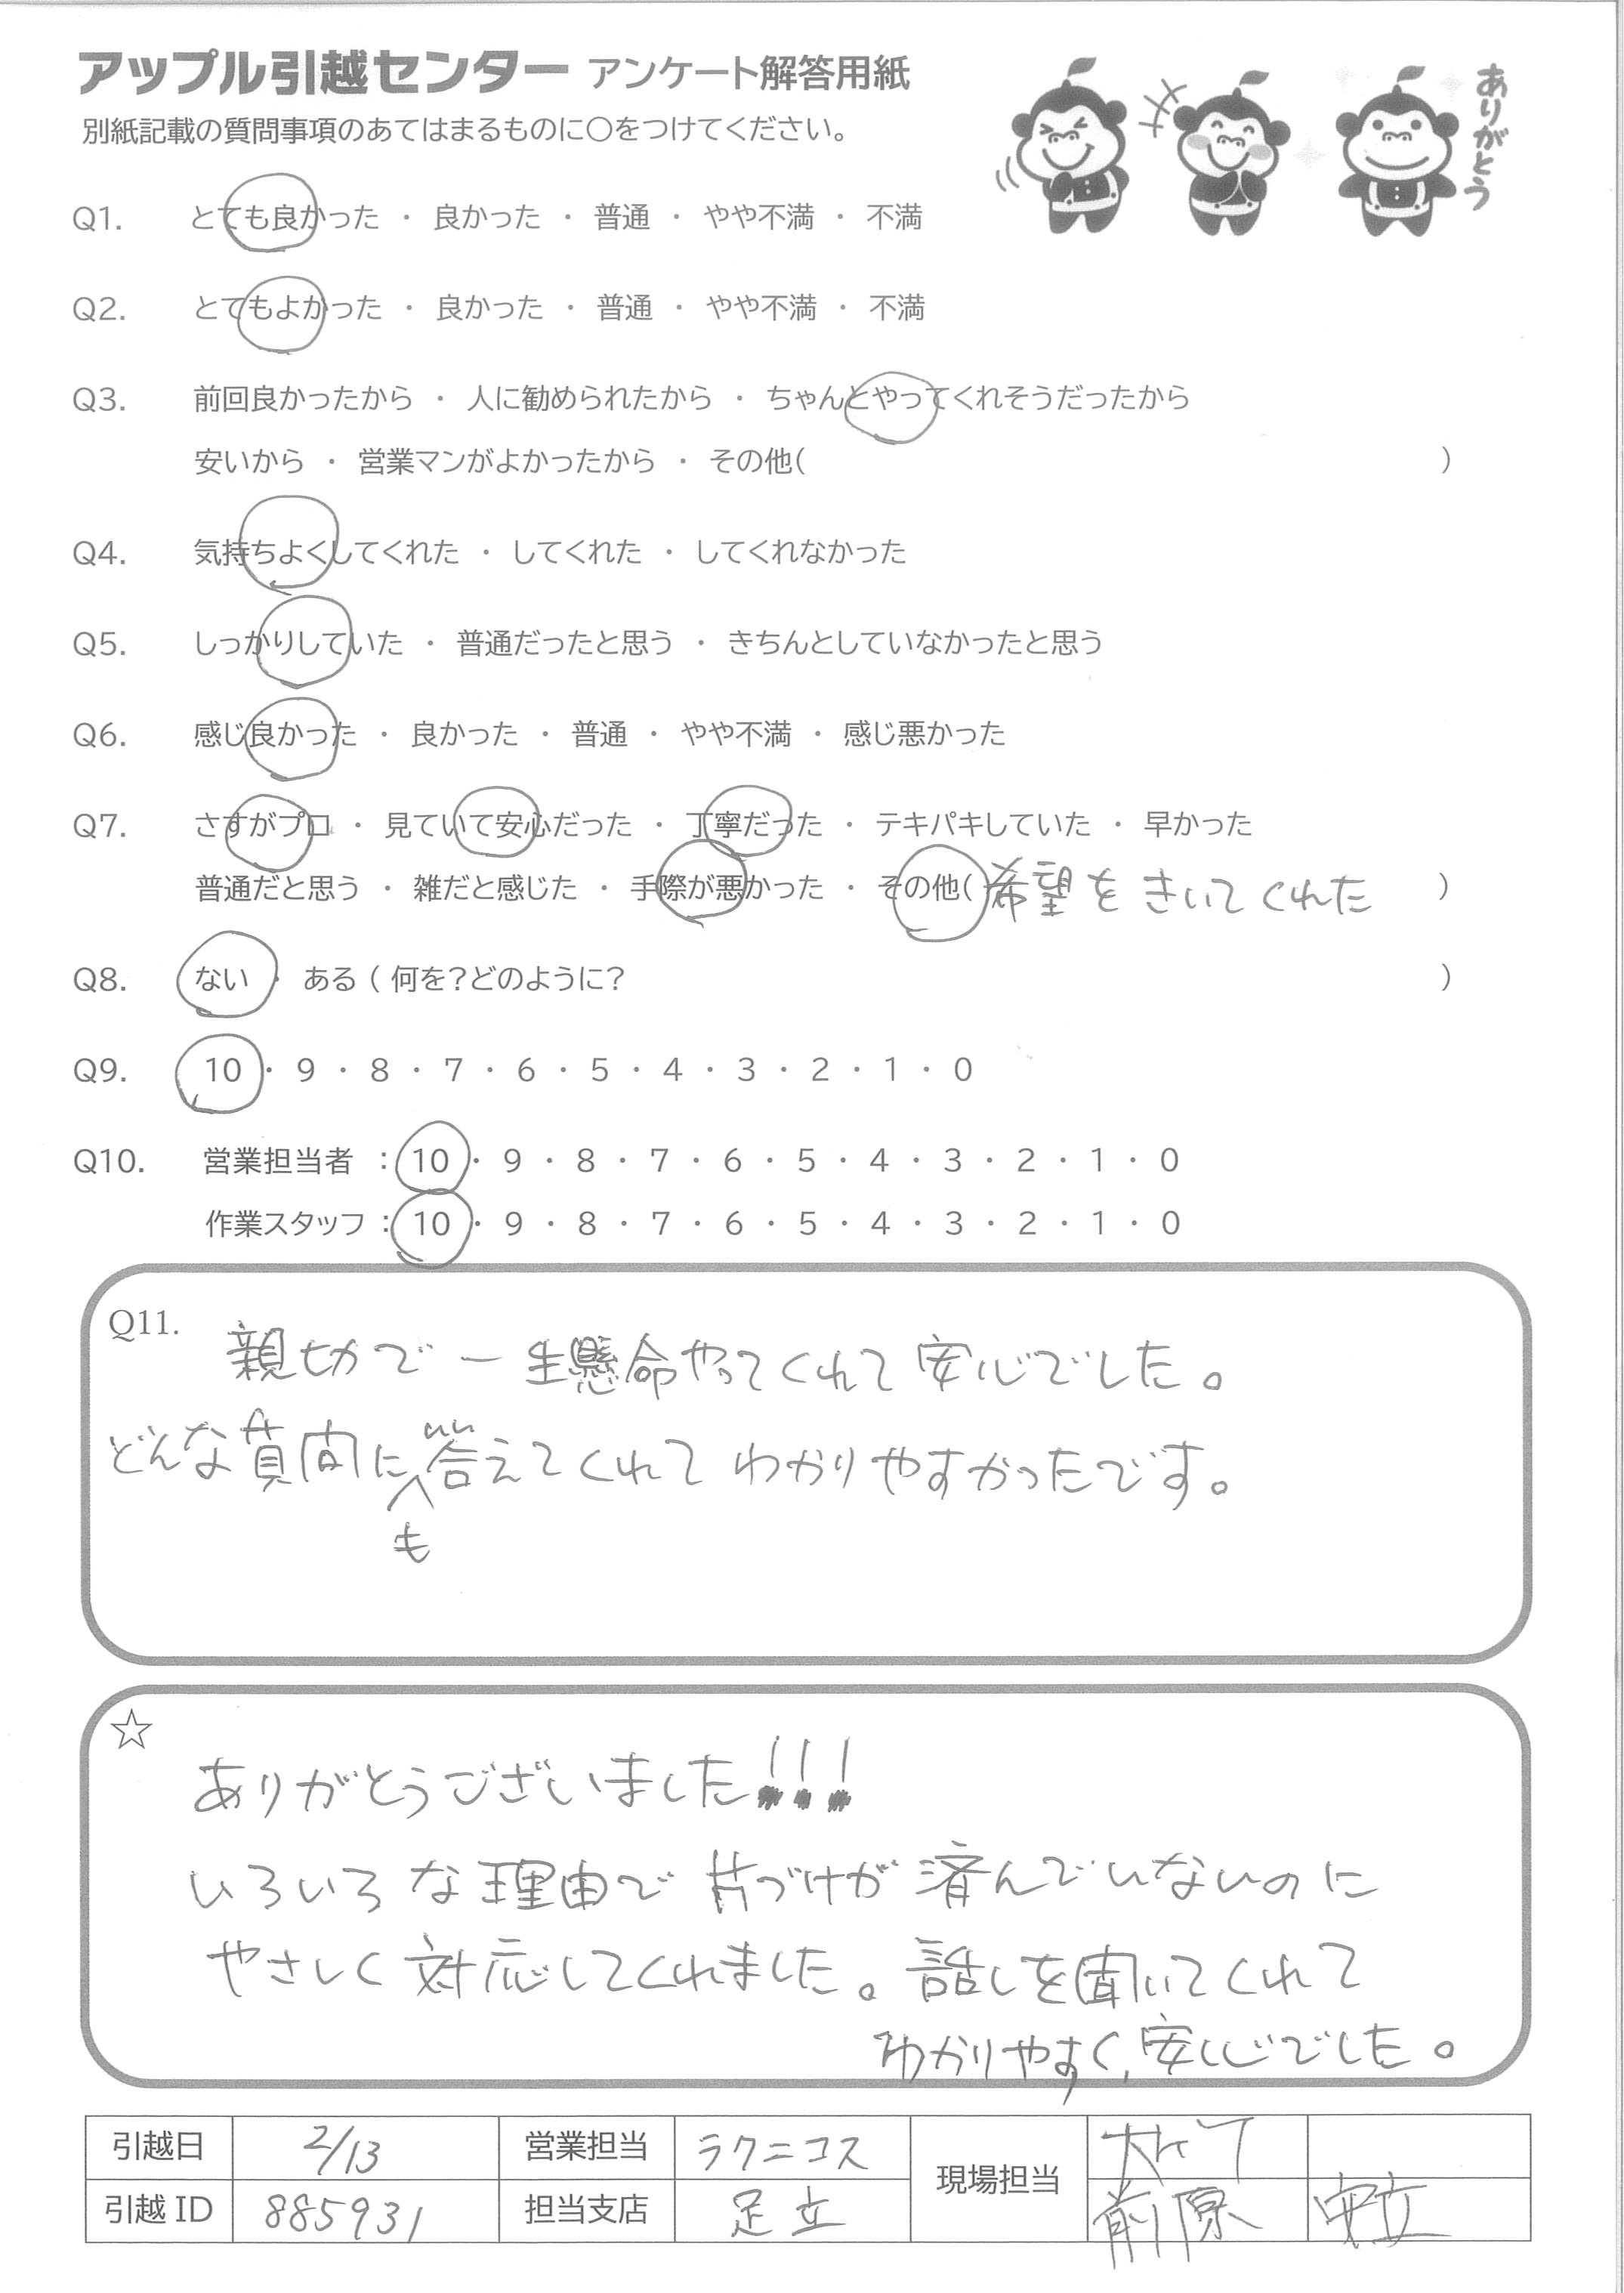 アップル引越センター アンケート解答用紙
ありがとう
別紙記載の質問事項のあてはまるものに○をつけてください。
Q1. とても良かった ・ 良かった ・ 普通 ・ やや不満 ・ 不満
Q2. とてもよかった ・ 良かった ・ 普通 ・ やや不満 ・ 不満
Q3. 前回良かったから ・ 人に勧められたから ・ ちゃんとやってくれそうだったから
安いから ・ 営業マンがよかったから ・ その他( )
Q4. 気持ちよくしてくれた ・ してくれた ・ してくれなかった
Q5. しっかりしていた ・ 普通だったと思う ・ きちんとしていなかったと思う
Q6. 感じ良かった ・ 良かった ・ 普通 ・ やや不満 ・ 感じ悪かった
Q7. さすがプロ ・ 見ていて安心だった ・ 丁寧だった ・ テキパキしていた ・ 早かった
普通だと思う ・ 雑だと感じた ・ 手際が悪かった ・ その他( 希望をきいてくれた )
Q8. ない ・ ある ( 何を?どのように? )
Q9. 10 ・ 9 ・ 8 ・ 7 ・ 6 ・ 5 ・ 4 ・ 3 ・ 2 ・ 1 ・ 0
Q10. 営業担当者 : 10 ・ 9 ・ 8 ・ 7 ・ 6 ・ 5 ・ 4 ・ 3 ・ 2 ・ 1 ・ 0
作業スタッフ : 10 ・ 9 ・ 8 ・ 7 ・ 6 ・ 5 ・ 4 ・ 3 ・ 2 ・ 1 ・ 0
Q11. 親切で一生懸命やってくれて安心でした。
どんな質問にも答えてくれてわかりやすかったです。
☆
ありがとうございました!!!
いろいろな理由で片づけが済んでいないのに
やさしく対応してくれました。話しを聞いてくれて
わかりやすく、安心でした。
引越日 2/13 営業担当 ラクニコス 現場担当
引越ID 885931 担当支店 足立 前原 安立